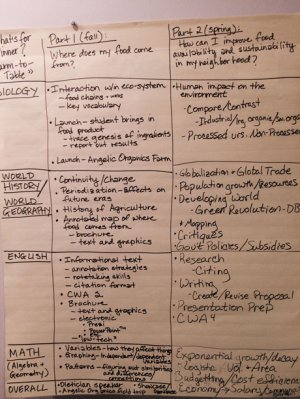 What's for
Dinner?
Farm-to-
Table"
Part 1 (fall):
Where does my food come
from?
Part 2 (spring):
How can I improve food
availability and sustainability
in my neighborhood?
BIOLOGY
• Interaction w/in eco-system
- food chains + webs
- key vocabulary
• Launch - student brings in
food product
- trace genesis of ingredients
- report out results
• Launch - Angelic Organics Farm
• Human impact on the
environment
- Compare/Contrast
- Industrial/lrg. organic/sm. organic
- Processed vrs. Non-Processed
WORLD
HISTORY/
WORLD
GEOGRAPHY
• Continuity/Change
• Periodization - Effects on
future eras
• History of Agriculture
• Annotated map of where
food comes from
- brochure
- text and graphics
• Globalization + Global Trade
• Population growth/Resources
• Developing World
- Green Revolution - DBQ
• Mapping
• Critiques
• Gov't Policies/Subsidies
ENGLISH
• Informational text
- annotation strategies
- notetaking skills
- citation format
• CWA 2
• Brochure
- text and graphics
- electronic
• Prezi
• PowerPoint
• "low-tech"
• Research
- Citing
• Writing
- Create/Revise Proposal
• Presentation Prep
• CWA 4
MATH
(Algebra +
Geometry)
• Variables - how they affect things
• Graphing - Independent/dependent
variables
• Patterns - figuring out similarities
and differences/
connections
Exponential growth/decay
Logistic Vol + Area
Budgeting/Cost efficient
Economy → Salary/Expenses
OVERALL
• Dietician speaker
• Angelic Organics field trip
• Showcase/